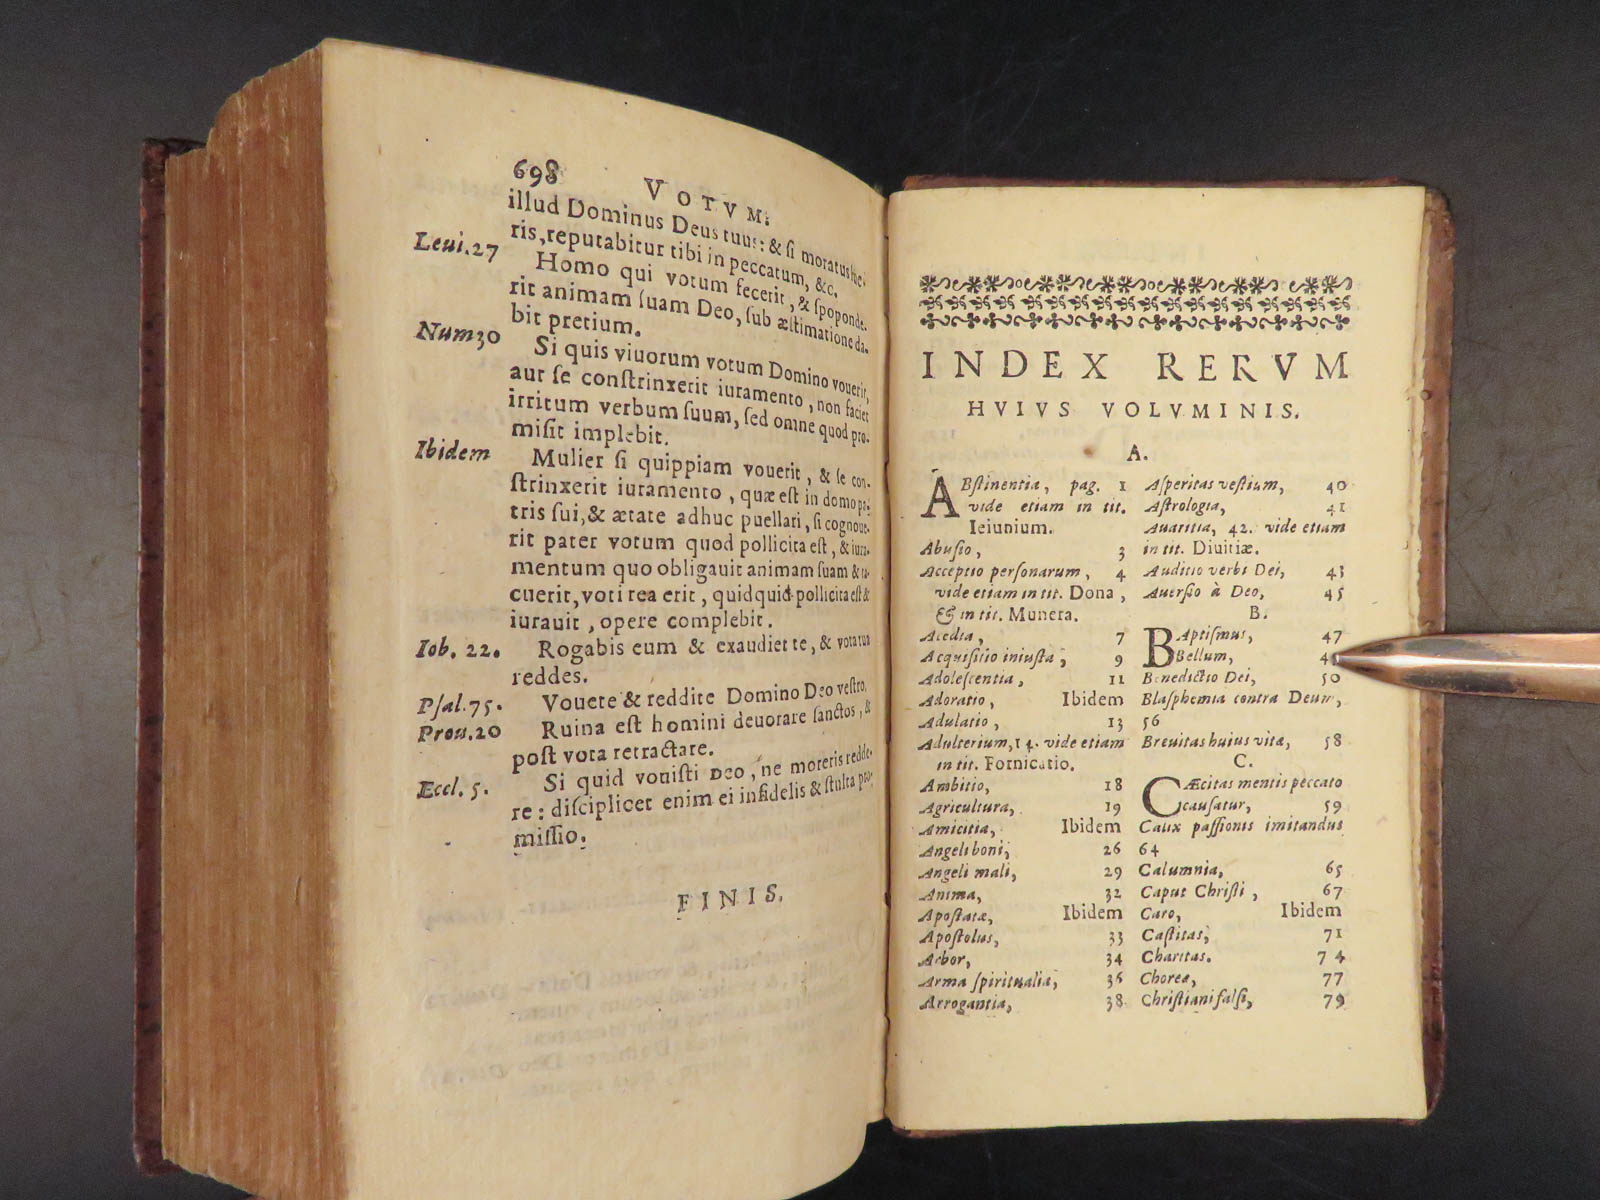 698 VOTVM.
illud Dominus Deus tuus: & ſi moratus fue-
ris, reputabitur tibi in peccatum, &c.
Leui.27 Homo qui votum fecerit, & ſpoponde-
rit animam ſuam Deo, ſub æſtimatione da-
bit pretium.
Num30 Si quis viuorum votum Domino vouerit,
aut ſe conſtrinxerit iuramento, non faciet
irritum verbum ſuum, ſed omne quod pro-
miſit implebit.
Ibidem Mulier ſi quippiam vouerit, & ſe con-
ſtrinxerit iuramento, quæ eſt in domo pa-
tris ſui, & ætate adhuc puellari, ſi cognoue-
rit pater votum quod pollicita eſt, & iura-
mentum quo obligauit animam ſuam & ta-
cuerit, voti rea erit, quidquid pollicita eſt &
iurauit, opere complebit.
Iob. 22. Rogabis eum & exaudiet te, & vota tua
reddes.
Pſal.75. Vouete & reddite Domino Deo veſtro.
Prou.20 Ruina eſt homini deuorare ſanctos, &
poſt vota retractare.
Eccl. 5. Si quid vouiſti DEO, ne moreris redde-
re: diſplicet enim ei infidelis & ſtulta pro-
miſſio.
FINIS.
INDEX RERVM
HVIVS VOLVMINIS.
A.
ABſtinentia, pag. 1
vide etiam in tit.
Ieiunium.
Abuſio, 3
Acceptio perſonarum, 4
vide etiam in tit. Dona,
& in tit. Munera.
Acedia, 7
Acquiſitio iniuſta, 9
Adoleſcentia, 11
Adoratio, Ibidem
Adulatio, 13
Adulterium, 14. vide etiam
in tit. Fornicatio.
Ambitio, 18
Agricultura, 19
Amicitia, Ibidem
Angeli boni, 26
Angeli mali, 29
Anima, 32
Apoſtatæ, Ibidem
Apoſtolus, 33
Arbor, 34
Arma ſpiritualia, 36
Arrogantia, 38
Aſperitas veſtium, 40
Aſtrologia, 41
Auaritia, 42. vide etiam
in tit. Diuitiæ.
Auditio verbi Dei, 43
Auerſio à Deo, 45
B.
BAptiſmus, 47
Bellum,
Benedictio Dei, 50
Blaſphemia contra Deum,
56
Breuitas huius vitæ, 58
C.
CÆcitas mentis peccato
cauſatur, 59
Calix paſſionis imitandus
64
Calumnia, 65
Caput Chriſti, 67
Caro, Ibidem
Caſtitas, 71
Charitas. 74
Choreæ, 77
Chriſtiani falſi, 79